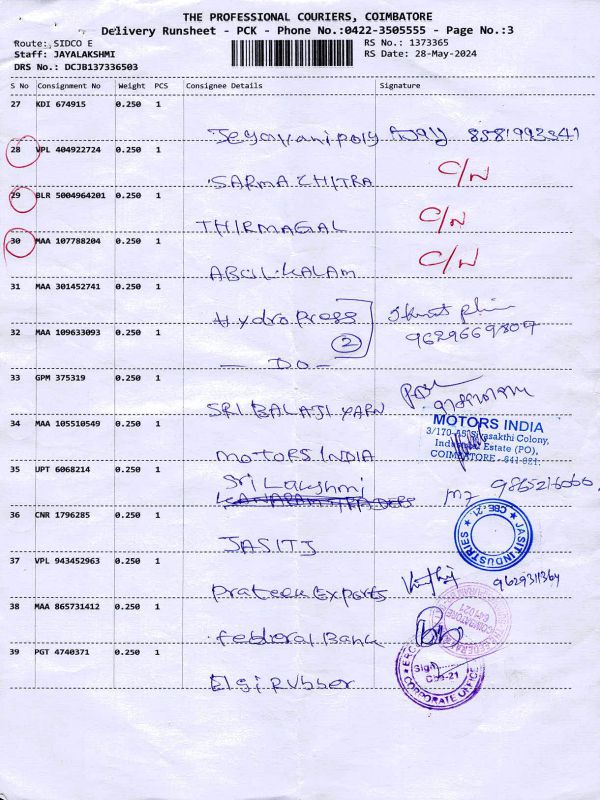 THE PROFESSIONAL COURIERS, COIMBATORE
Delivery Runsheet - PCK - Phone No.:0422-3505555 - Page No.:3
Route: SIDCO E
RS No.: 1373365
Staff: JAYALAKSHMI
RS Date: 28-May-2024
DRS No.: DCJB137336503
S No Consignment No Weight PCS Consignee Details Signature
27 KDI 674915 0.250 1
Jeyavanipoly
28 VPL 404922724 0.250 1
SARMA CHITRA C/N
29 BLR 5004964201 0.250 1
THIRMAGAL C/N
30 MAA 107788204 0.250 1
ABUL·KALAM C/N
31 MAA 301452741 0.250 1
Hydro Press
32 MAA 109633093 0.250 1 2 9629669807
- DO -
33 GPM 375319 0.250 1
SRI BALAJI YARN
34 MAA 105510549 0.250 1
MOTORS INDIA
3/170-A5, Sivasakthi Colony,
Industrial Estate (PO),
COIMBATORE - 641 021.
MOTORS INDIA
35 UPT 6068214 0.250 1
Sri Lakshmi
36 CNR 1796285 0.250 1
JASIT INDUSTRIES CBE-21.
JASITJ
37 VPL 943452963 0.250 1
Prateek Exports 9629311364
38 MAA 865731412 0.250 1
Federal Bank
39 PGT 4740371 0.250 1
Sign
CBE-21
CORPORATE OFFICE
Elgi Rubber